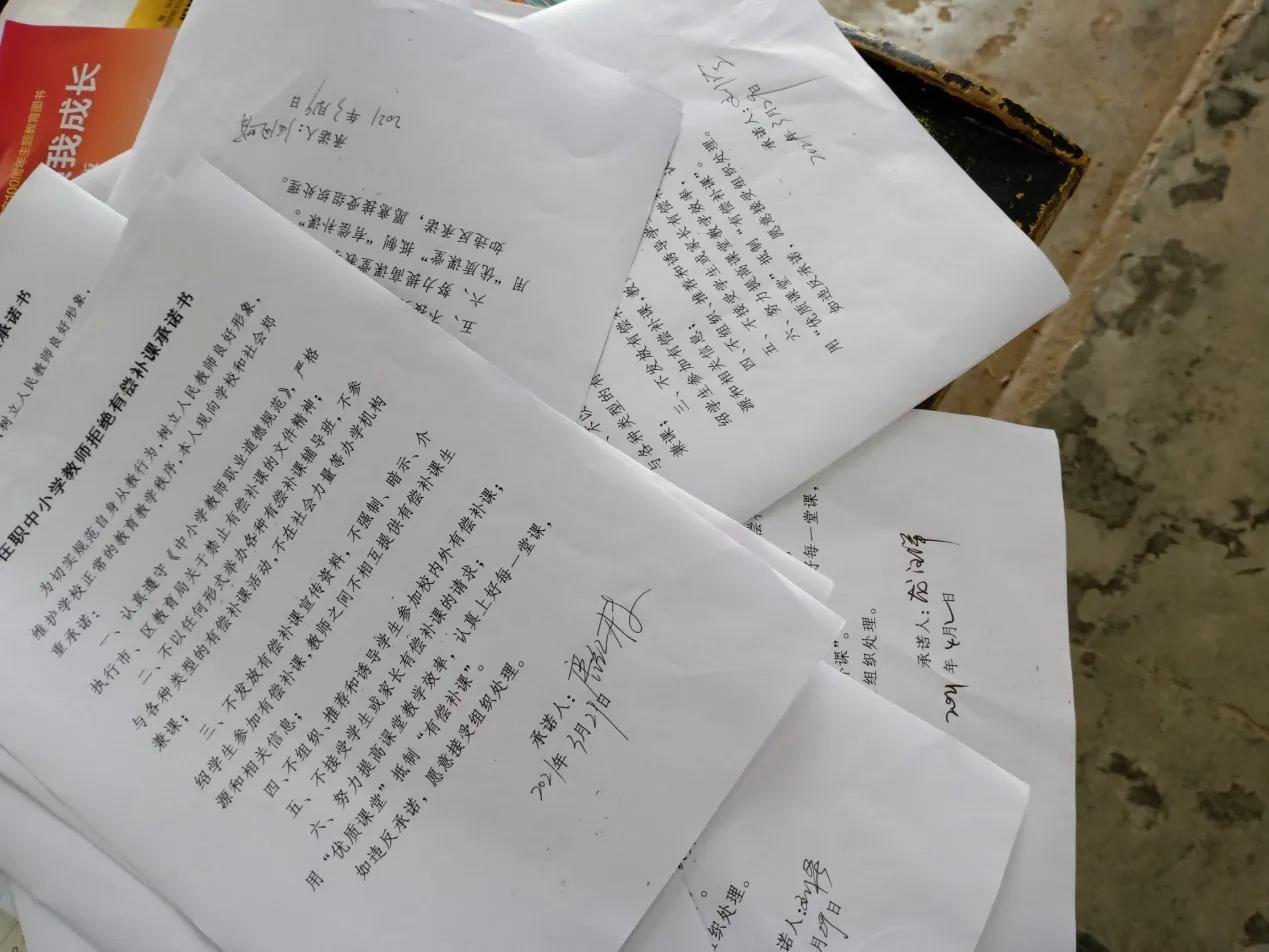 在职中小学教师拒绝有偿补课承诺书
为切实规范自身从教行为,树立人民教师良好形象,
维护学校正常的教育教学秩序,本人现向学校和社会郑
重承诺:
一、认真遵守《中小学教师职业道德规范》,严格
执行市、区教育局关于禁止有偿补课的文件精神;
二、不以任何形式举办各种有偿补课辅导班,不参
与各种类型的有偿补课活动,不在社会力量等办学机构
兼课;
三、不发放有偿补课宣传资料,不强制、暗示、介
绍学生参加有偿补课,教师之间不相互提供有偿补课生
源和相关信息;
四、不组织、推荐和诱导学生参加校内外有偿补课;
五、不接受学生或家长有偿补课的请求;
六、努力提高课堂教学效率,认真上好每一堂课,
用“优质课堂”抵制“有偿补课”。
如违反承诺,愿意接受组织处理。
承诺人:
2021年3月29日
承诺书
,树立人民教师良好形象,
我成长
100周年主题教育图书
五、不接
六、努力提高课堂教学
用“优质课堂”抵制“有偿补课”
如违反承诺,愿意接受组织处理。
承诺人:
2021年3月29日
与各种类型的有
兼课;
三、不发放有偿
绍学生参加有偿补课,教
源和相关信息;
四、不组织、推荐和诱导学
五、不接受学生或家长有偿
六、努力提高课堂教学效率,
用“优质课堂”抵制“有偿补课”。
如违反承诺,愿意接受组织处理。
承诺人:
2021年3月29日
好每一堂课,
课”。
组织处理。
承诺人:
2021年4月2日
组织处理。
诺人:
月29日